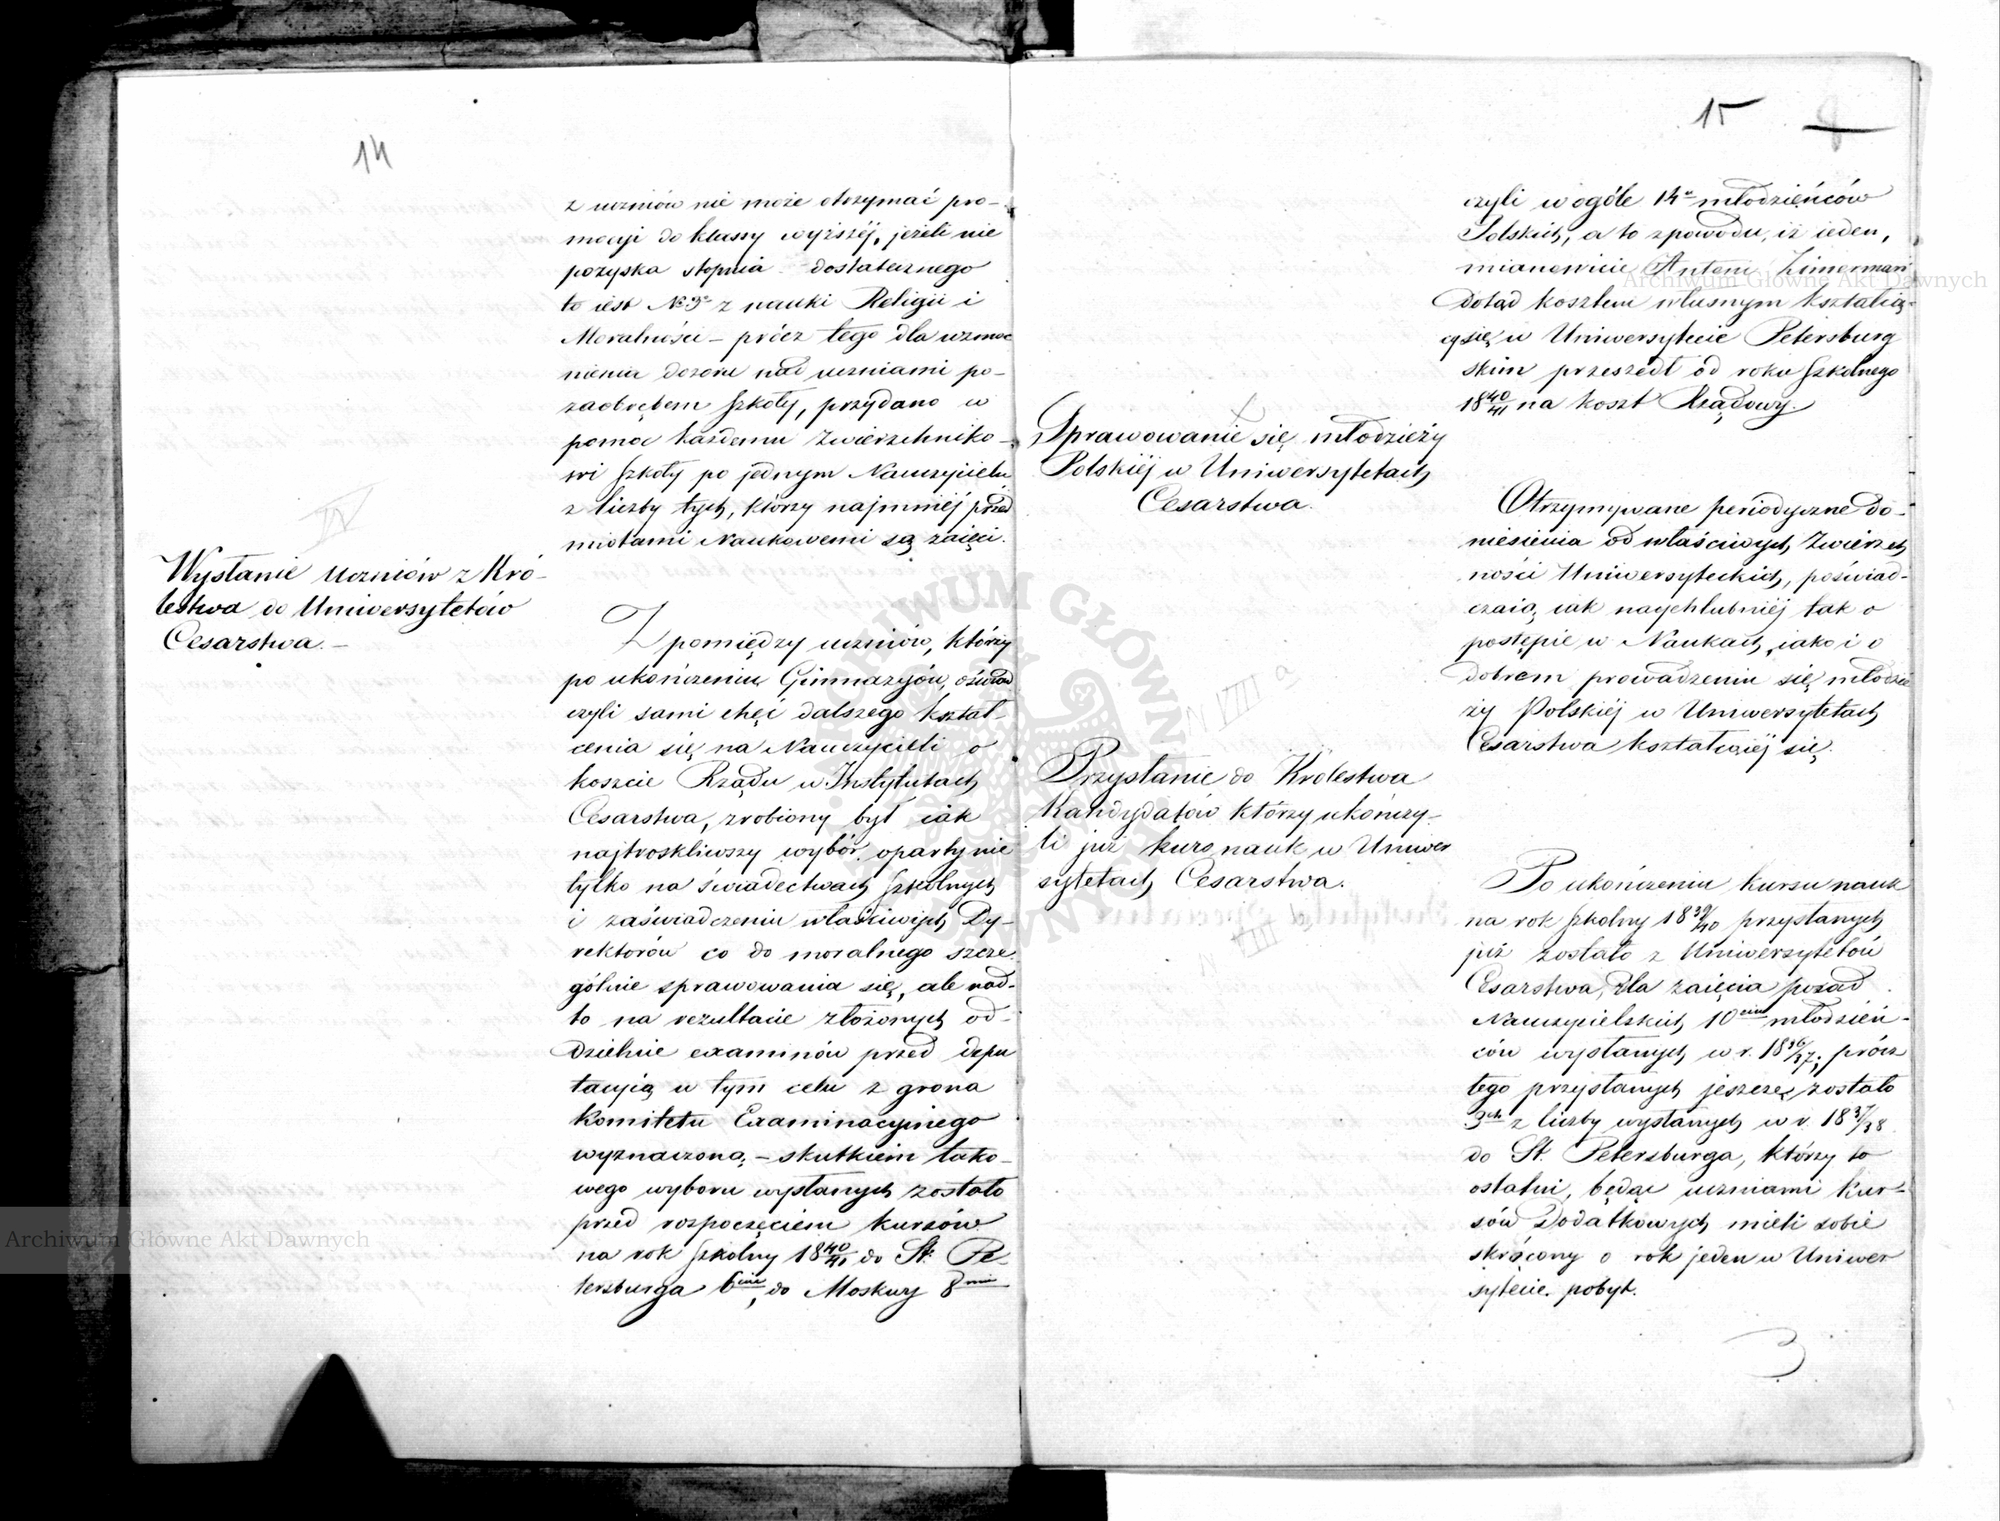 14
z uczniów nie może otrzymać pro-
mocyi do klassy wyższéj, jeżeli nie
pozyska stopnia dostatecznego
to iest No 3o z nauki Religii i
Moralności – prócz tego dla wzmoc
nienia dozoru nad uczniami po-
zaobrębem szkoły, przydano w
pomoc każdemu Zwierzchniko-
wi szkoły po jednym Nauczycielu
z liczby tych, którzy najmniéj przed
miotami Naukowemi są zaięci.
IV
Wysłanie Uczniów z Kró-
lestwa do Uniwersytetów
Cesarstwa. –
Z pomiędzy uczniów, którzy
po ukończeniu Gimnazyów, oświad
czyli sami chęć dalszego kształ-
cenia się na Nauczycieli o
koszcie Rządu w Instytutach
Cesarstwa, zrobiony był iak
najtroskliwszy wybór, oparty nie
tylko na świadectwach szkolnych
i zaświadczeniu właściwych Dy-
rektorów co do moralnego szcze
gólnie sprawowania się, ale nad-
to na rezultacie złożonych od-
dzielnie examinów przed depu
tacyią w tym celu z grona
Komitetu Examinacyinego
wyznaczoną, – skutkiem tako-
wego wyboru wysłanych zostało
przed rozpoczęciem kursów
na rok szkolny 1840/41 do St. Pe-
tersburga 6ciu, do Moskwy 8miu
15
8
czyli w ogóle 14u młodzieńców
Polskich, a to z powodu, iż ieden,
mianowicie Antoni Zimerman
dotąd kosztem własnym kształcą-
cy się w Uniwersytecie Petersburg
skim przeszedł od roku szkolnego
1840/41 na koszt Rządowy.
Sprawowanie się młodzieży
Polskiéj w Uniwersytetach
Cesarstwa.
Otrzymywane periodyczne do-
niesienia od właściwych Zwierzch
ności Uniwersyteckich, poświad-
czaią iak naychlubniéj tak o
postępie w Naukach, iako i o
dobrem prowadzeniu się młodzie
ży Polskiéj w Uniwersytetach
Cesarstwa kształcącéj się.
N VIII a
Przysłanie do Królestwa
Kandydatów którzy ukończy-
li już kurs nauk w Uniwer
sytetach Cesarstwa.
N VIII
Po ukończeniu kursu nauk
na rok szkolny 1839/40 przysłanych
już zostało z Uniwersytetów
Cesarstwa, dla zaięcia posad
Nauczycielskich 10ciu młodzień-
ców wysłanych w r. 1836/37; prócz
tego przysłanych jeszcze zostało
3ch z liczby wysłanych w r. 1837/38
do St. Petersburga, którzy to
ostatni, będąc uczniami kur-
sów dodatkowych mieli sobie
skrócony o rok jeden w Uniwer
sytecie pobyt.
3
Archiwum Główne Akt Dawnych
Archiwum Główne Akt Dawnych